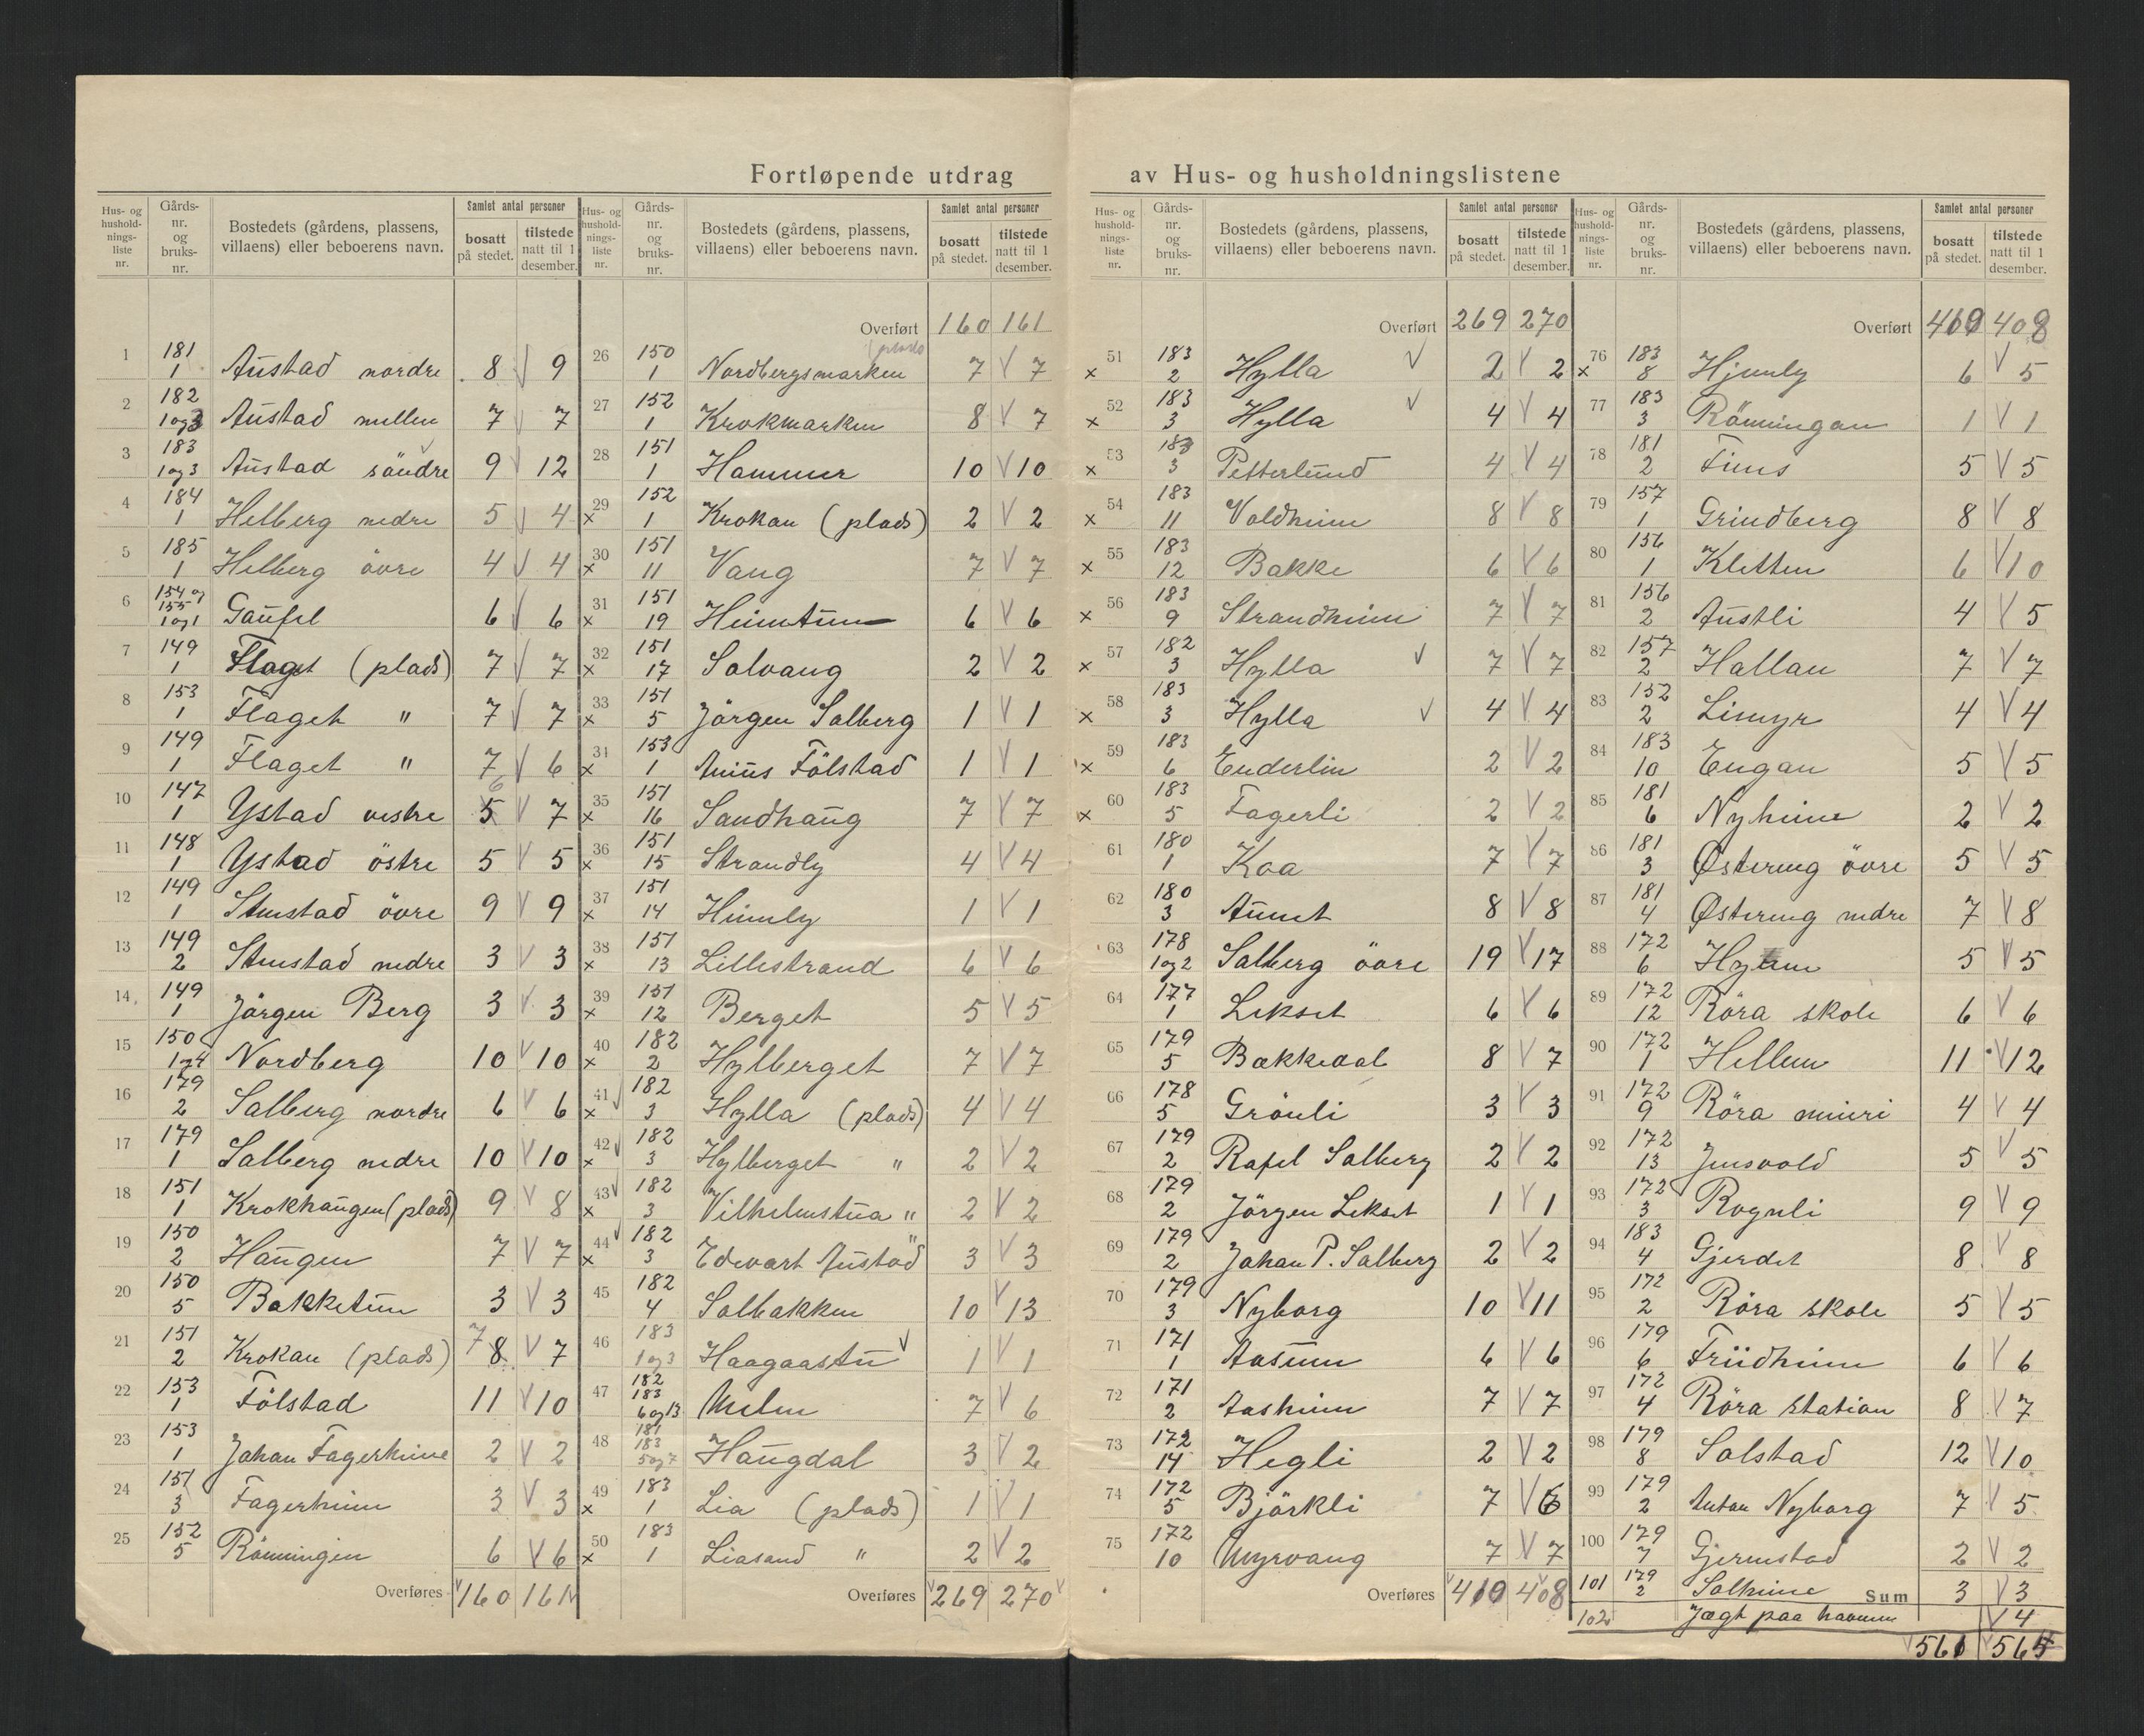 Fortløpende utdrag av Hus- og husholdningslistene
Hus- og hushold-nings-liste nr. Gårds-nr. og bruks-nr. Bostedets (gårdens, plassens, villaens) eller beboerens navn. Samlet antal personer bosatt på stedet. tilstede natt til 1 desember.
1 181 1 Austad nordre 8 V 9
2 182 1 og 3 Austad mellem 7 V 7
3 183 1 og 3 Austad söndre 9 V 12
4 184 1 Helberg nedre 5 V 4
5 185 1 Helberg övre 4 V 4
6 154 og 155 1 og 1 Gaufel 6 V 6
7 149 1 Flaget (plads) 7 V 7
8 153 1 Flaget " 7 V 7
9 149 1 Flaget " 7 V 6
10 147 1 Ystad vestre 5 6 V 7
11 148 1 Ystad östre 5 V 5
12 149 1 Stenstad övre 9 V 9
13 149 2 Stenstad nedre 3 V 3
14 149 1 Jörgen Berg 3 V 3
15 150 1 og 4 Nordberg 10 V 10
16 179 2 Salberg nordre 6 V 6
17 179 1 Salberg nedre 10 V 10
18 151 1 Krokhaugen (plads) 9 V 8
19 150 2 Haugen 7 V 7
20 150 5 Bakketun 3 V 3
21 151 2 Krokan (plads) 7 8 V 7
22 153 1 Fölstad 11 V 10
23 153 1 Johan Fagerheim 2 V 2
24 151 3 Fagerheim 3 V 3
25 152 5 Rönningen 6 V 6
Overføres V 160 161 V
Hus- og hushold-nings-liste nr. Gårds-nr. og bruks-nr. Bostedets (gårdens, plassens, villaens) eller beboerens navn. Samlet antal personer bosatt på stedet. tilstede natt til 1 desember.
Overført 160 161
26 150 1 Nordbergsmarken (plads 7 V 7
27 152 1 Krokmarken 8 V 7
28 151 1 Hammer 10 V 10
29 x 152 1 Krokan (plads) 2 V 2
30 x 151 11 Vang 7 V 7
31 x 151 19 Heimtun 6 V 6
32 x 151 17 Solvang 2 V 2
33 x 151 5 Jörgen Salberg 1 V 1
31 x 153 1 Anius Fölstad 1 V 1
35 x 151 16 Sandhaug 7 V 7
36 x 151 15 Strandly 4 V 4
37 x 151 14 Heimly 1 V 1
38 x 151 13 Lillestrand 6 V 6
39 x 151 12 Berget 5 V 5
40 x 182 2 Hylberget 7 V 7
41 V x 182 3 Hylla (plads) 4 V 4
42 V x 182 3 Hylberget " 2 V 2
43 V x 182 3 Vilhelmstua " 2 V 2
44 V x 182 3 Edvart Austad " 3 V 3
45 182 4 Solbakken 10 V 13
46 183 1 og 3 Haagaastu V 1 V 1
47 182 183 6 og 13 Melen 7 V 6
48 181 183 5 og 7 Haugdal 3 V 2
49 x 183 1 Lia (plads) 1 V 1
50 x 183 1 Liasand " 2 V 2
Overføres V 269 270 V
Hus- og hushold-nings-liste nr. Gårds-nr. og bruks-nr. Bostedets (gårdens, plassens, villaens) eller beboerens navn. Samlet antal personer bosatt på stedet. tilstede natt til 1 desember.
Overført 269 270
51 x 183 2 Hylla V 2 V 2
52 x 183 3 Hylla V 4 V 4
53 x 183 3 Petterlund 4 V 4
54 x 183 11 Voldheim 8 V 8
55 x 183 12 Bakke 6 V 6
56 x 183 9 Strandheim 7 V 7
57 x 182 3 Hylla V 7 V 7
58 x 183 3 Hylla V 4 V 4
59 x 183 6 Enderlin 2 V 2
60 x 183 5 Fagerli 2 V 2
61 180 1 Koa 7 V 7
62 180 3 Aunet 8 V 8
63 178 1 og 2 Salberg övre 19 V 17
64 177 1 Lekset 6 V 6
65 179 5 Bakkedal 8 V 7
66 178 5 Grönli 3 V 3
67 179 2 Rafel Salberg 2 V 2
68 179 2 Jörgen Lekset 1 V 1
69 179 2 Johan P. Salberg 2 V 2
70 179 3 Nyborg 10 V 11
71 171 1 Aasum 6 V 6
72 171 2 Aasheim 7 V 7
73 172 14 Hegli 2 V 2
74 172 5 Björkli 7 V 6
75 172 10 Myrvang 7 V 7
Overføres V 410 408
Hus- og hushold-nings-liste nr. Gårds-nr. og bruks-nr. Bostedets (gårdens, plassens, villaens) eller beboerens navn. Samlet antal personer bosatt på stedet. tilstede natt til 1 desember.
Overført 410 408
76 x 183 8 Hjemly 6 V 5
77 183 3 Rönningan 1 V 1
78 181 2 5 V 5
79 157 1 Grindberg 8 V 8
80 156 1 Kletten 6 V 10
81 156 2 Austli 4 V 5
82 157 2 Hallan 7 V 7
83 152 2 Limyr 4 V 4
84 183 10 Engan 5 V 5
85 181 6 Nyheim 2 V 2
86 181 3 Østereng övre 5 V 5
87 181 4 Østereng nedre 7 V 8
88 172 6 5 V 5
89 172 12 Röra skole 6 V 6
90 172 1 Hellem 11 V 12
91 172 9 Röra meieri 4 V 4
92 172 13 Jensvold 5 V 5
93 172 3 Rognli 9 V 9
94 183 4 Gjerdet 8 V 8
95 172 2 Röra skole 5 V 5
96 179 6 Friidheim 6 V 6
97 172 4 Röra station 8 V 7
98 179 8 Solstad 12 V 10
99 179 2 Anton Nyborg 7 V 5
100 179 7 Gjermstad 2 V 2
101 179 2 Solheim Sum 3 V 3
102 Jægt paa havnen V 4
V 561 V 565